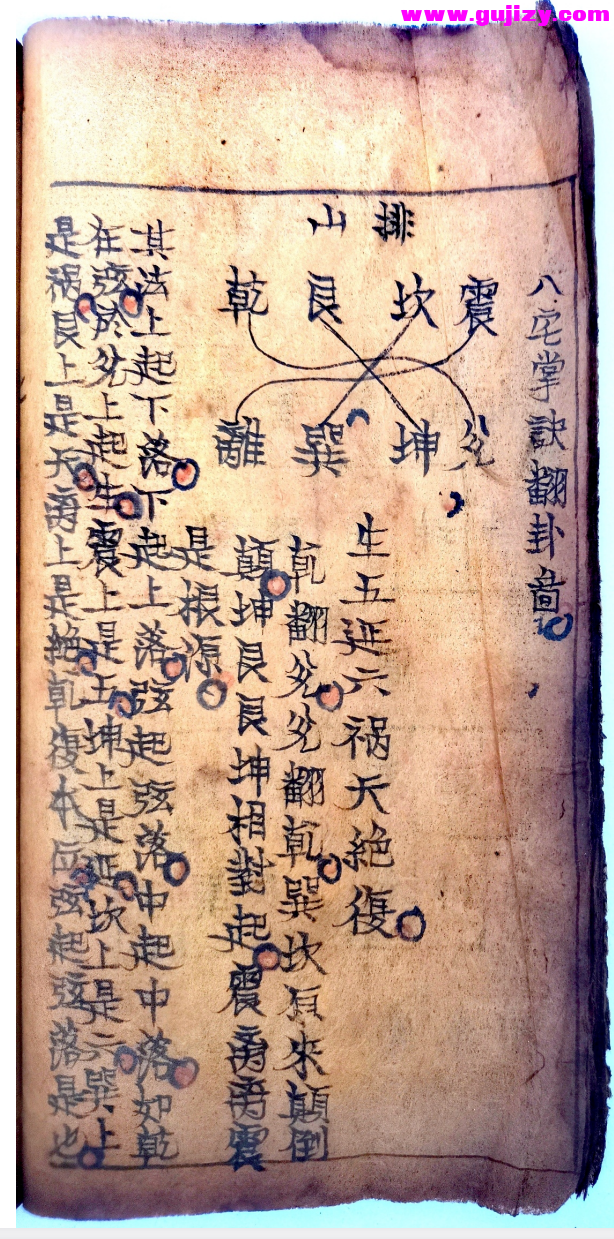 www.gujizy.com
八宅掌訣翻卦啚
排山
震坎艮乾
兌坤巽離
生五延六祸天絶復
乹翻兌兌翻乹巽坎原來顛倒
顛坤艮艮坤相對起震离离震
是根源
其法上起下落下起上落弦起弦落中起中落如乾
在弦於兌上起生震上是五坤上是延坎上是六巽上
是祸艮上是天离上是絶乹復本位弦起弦落是也